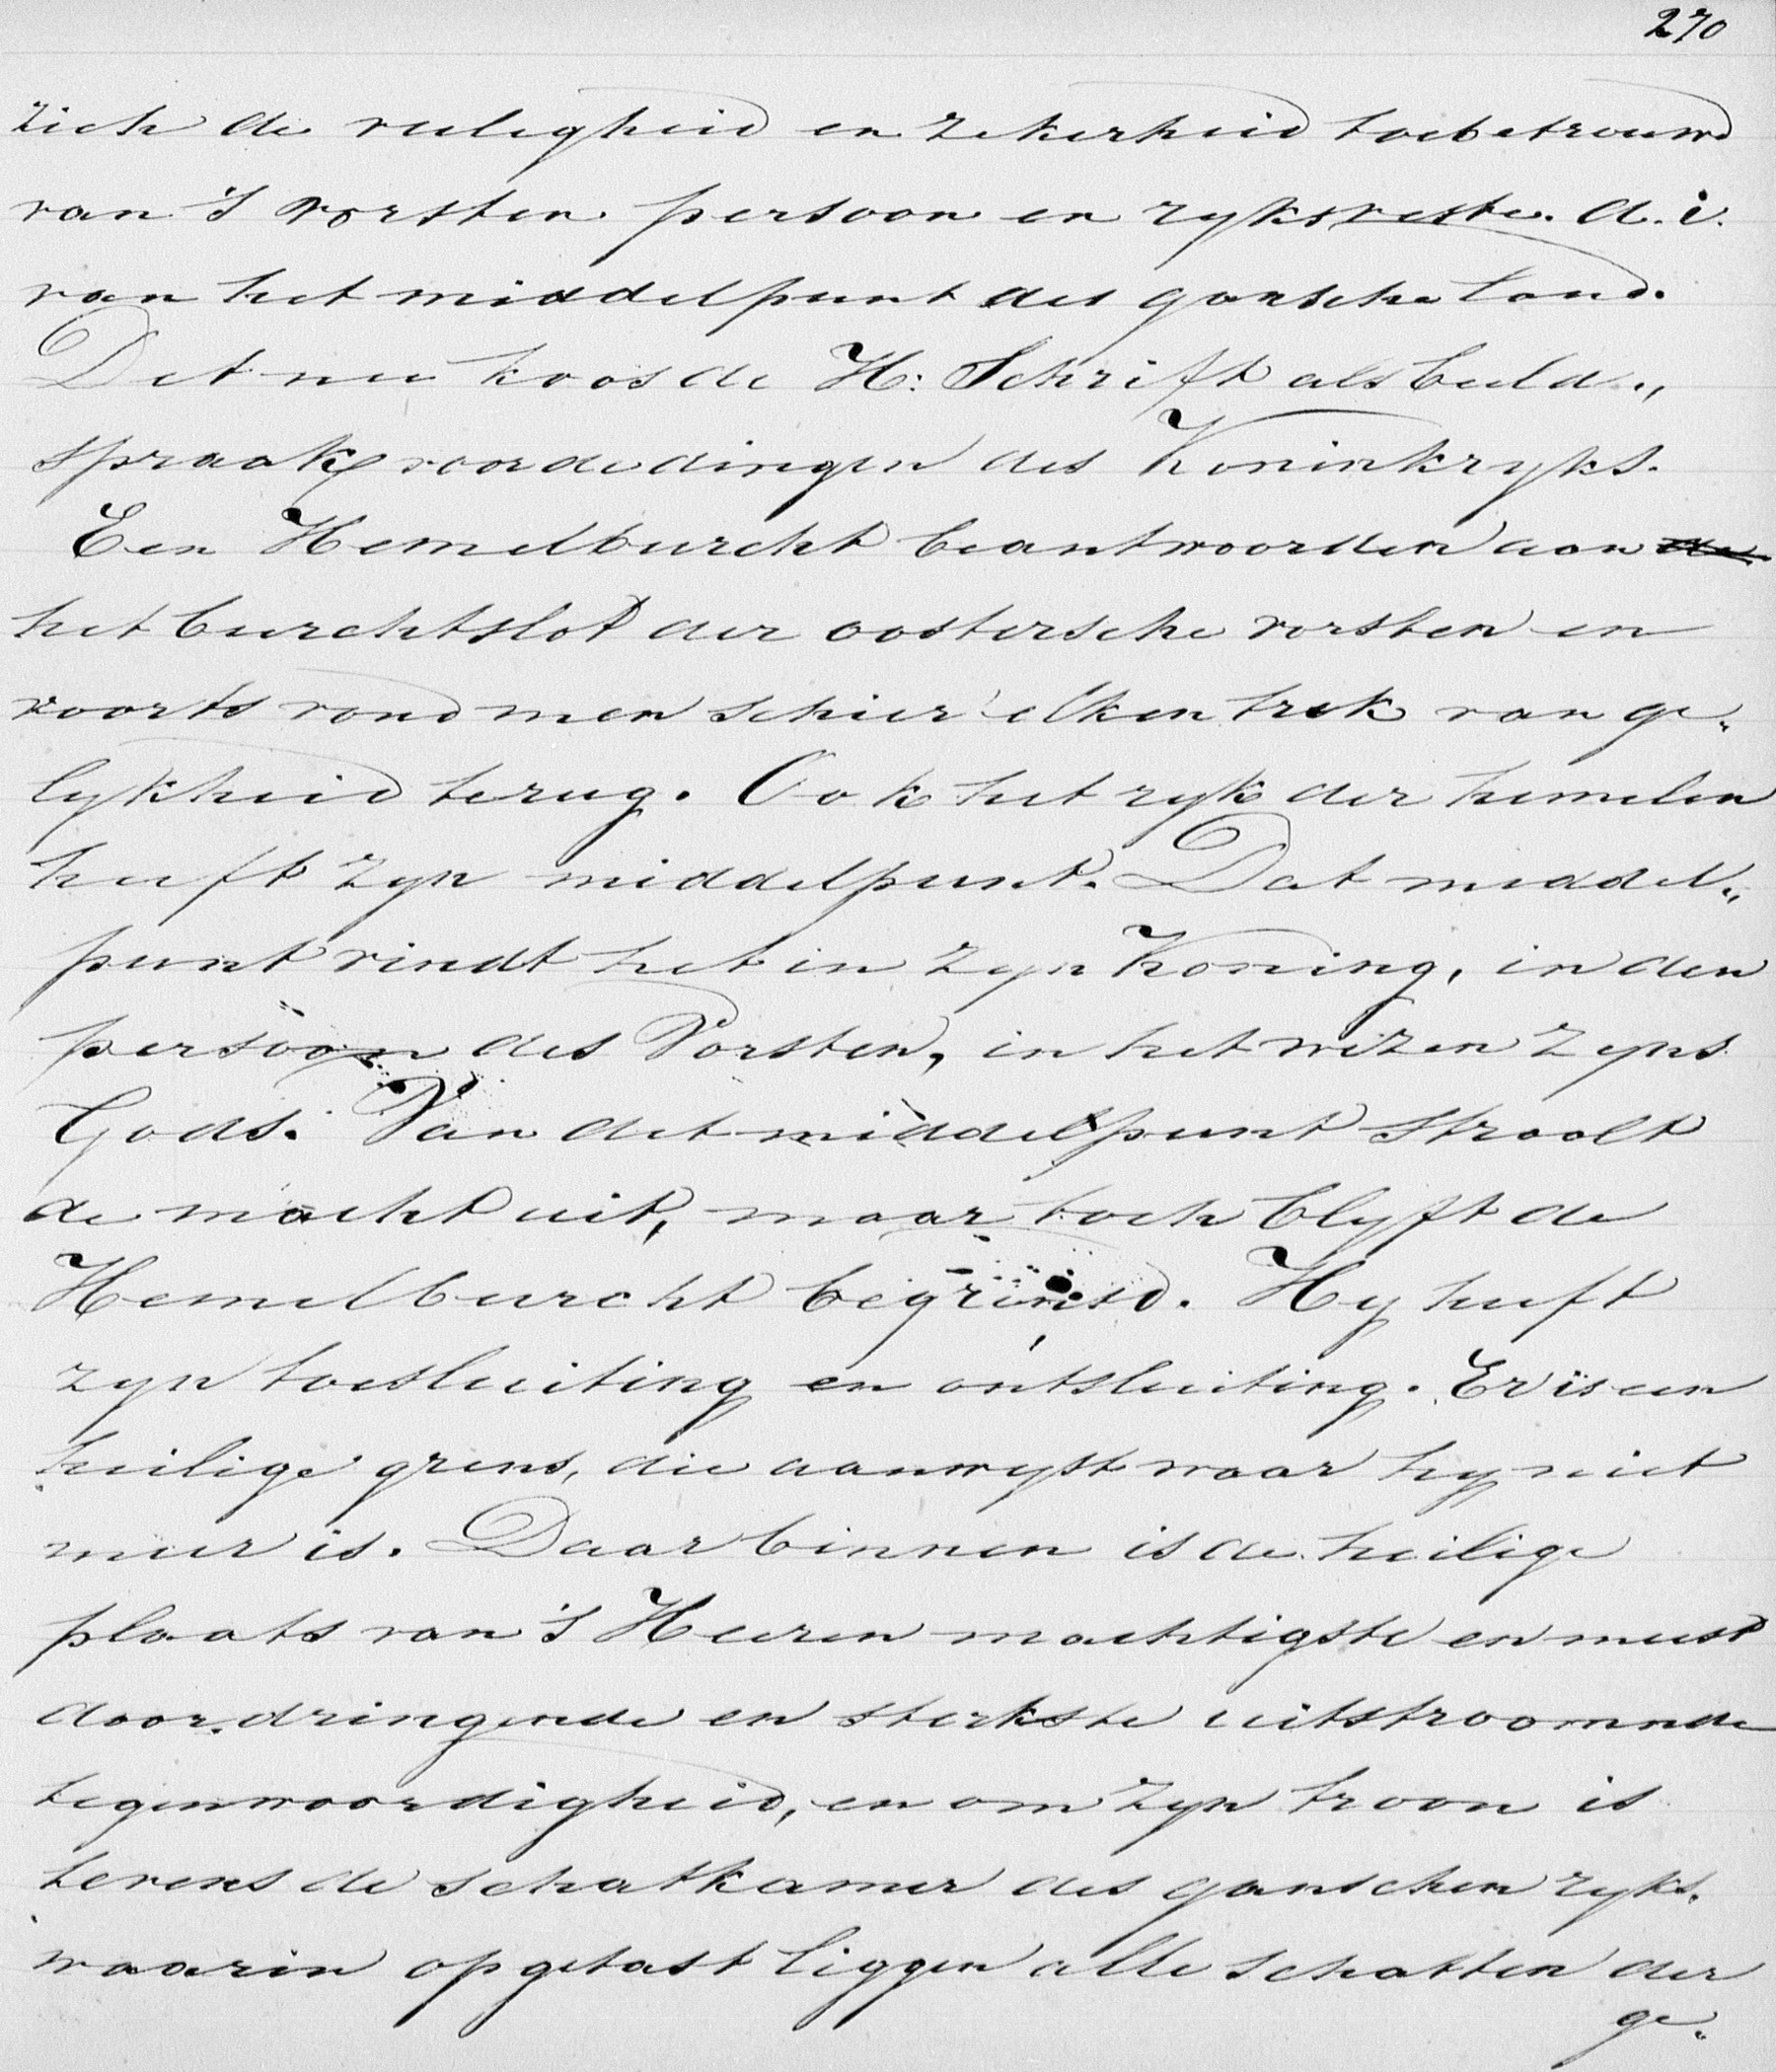 270
zich de veiligheid en zekerheid toebetrouwd
van 's vorsten persoon en ryksveste. d.i.
van het middelpunt des gansche land.
Dit nu koos de H: Schrift als beeld„
spraak voor de dingen des Koninkryks.
Een Hemelburcht beantwoorden aan de
het burchtslot der oostersche vorsten en
voorts vond men schier elken trek van ge„
lykheid terug. Ook het ryk der hemelen
heeft zyn middelpunt. Dat middel„
punt vindt het in zyn Koning, in den
persoon des Vorsten, in het wezen zyns
Gods. Van dit middelpunt straalt
de macht uit, maar toch blyft de
Hemelburcht begrensd. Hy heeft
zyn toesluiting en ontsluiting. Er is een
heilige grens, die aanwyst waar hy niet
meer is. Daar binnen is de heilige
plaats van 's Heeren machtigste en meest
doordringende en sterkste uitstroomnde
tegenwoordigheid, en om zyn troon is
tevens de schatkamer des ganschen ryks.
waarin opgetast liggen alle schatten der
ge„